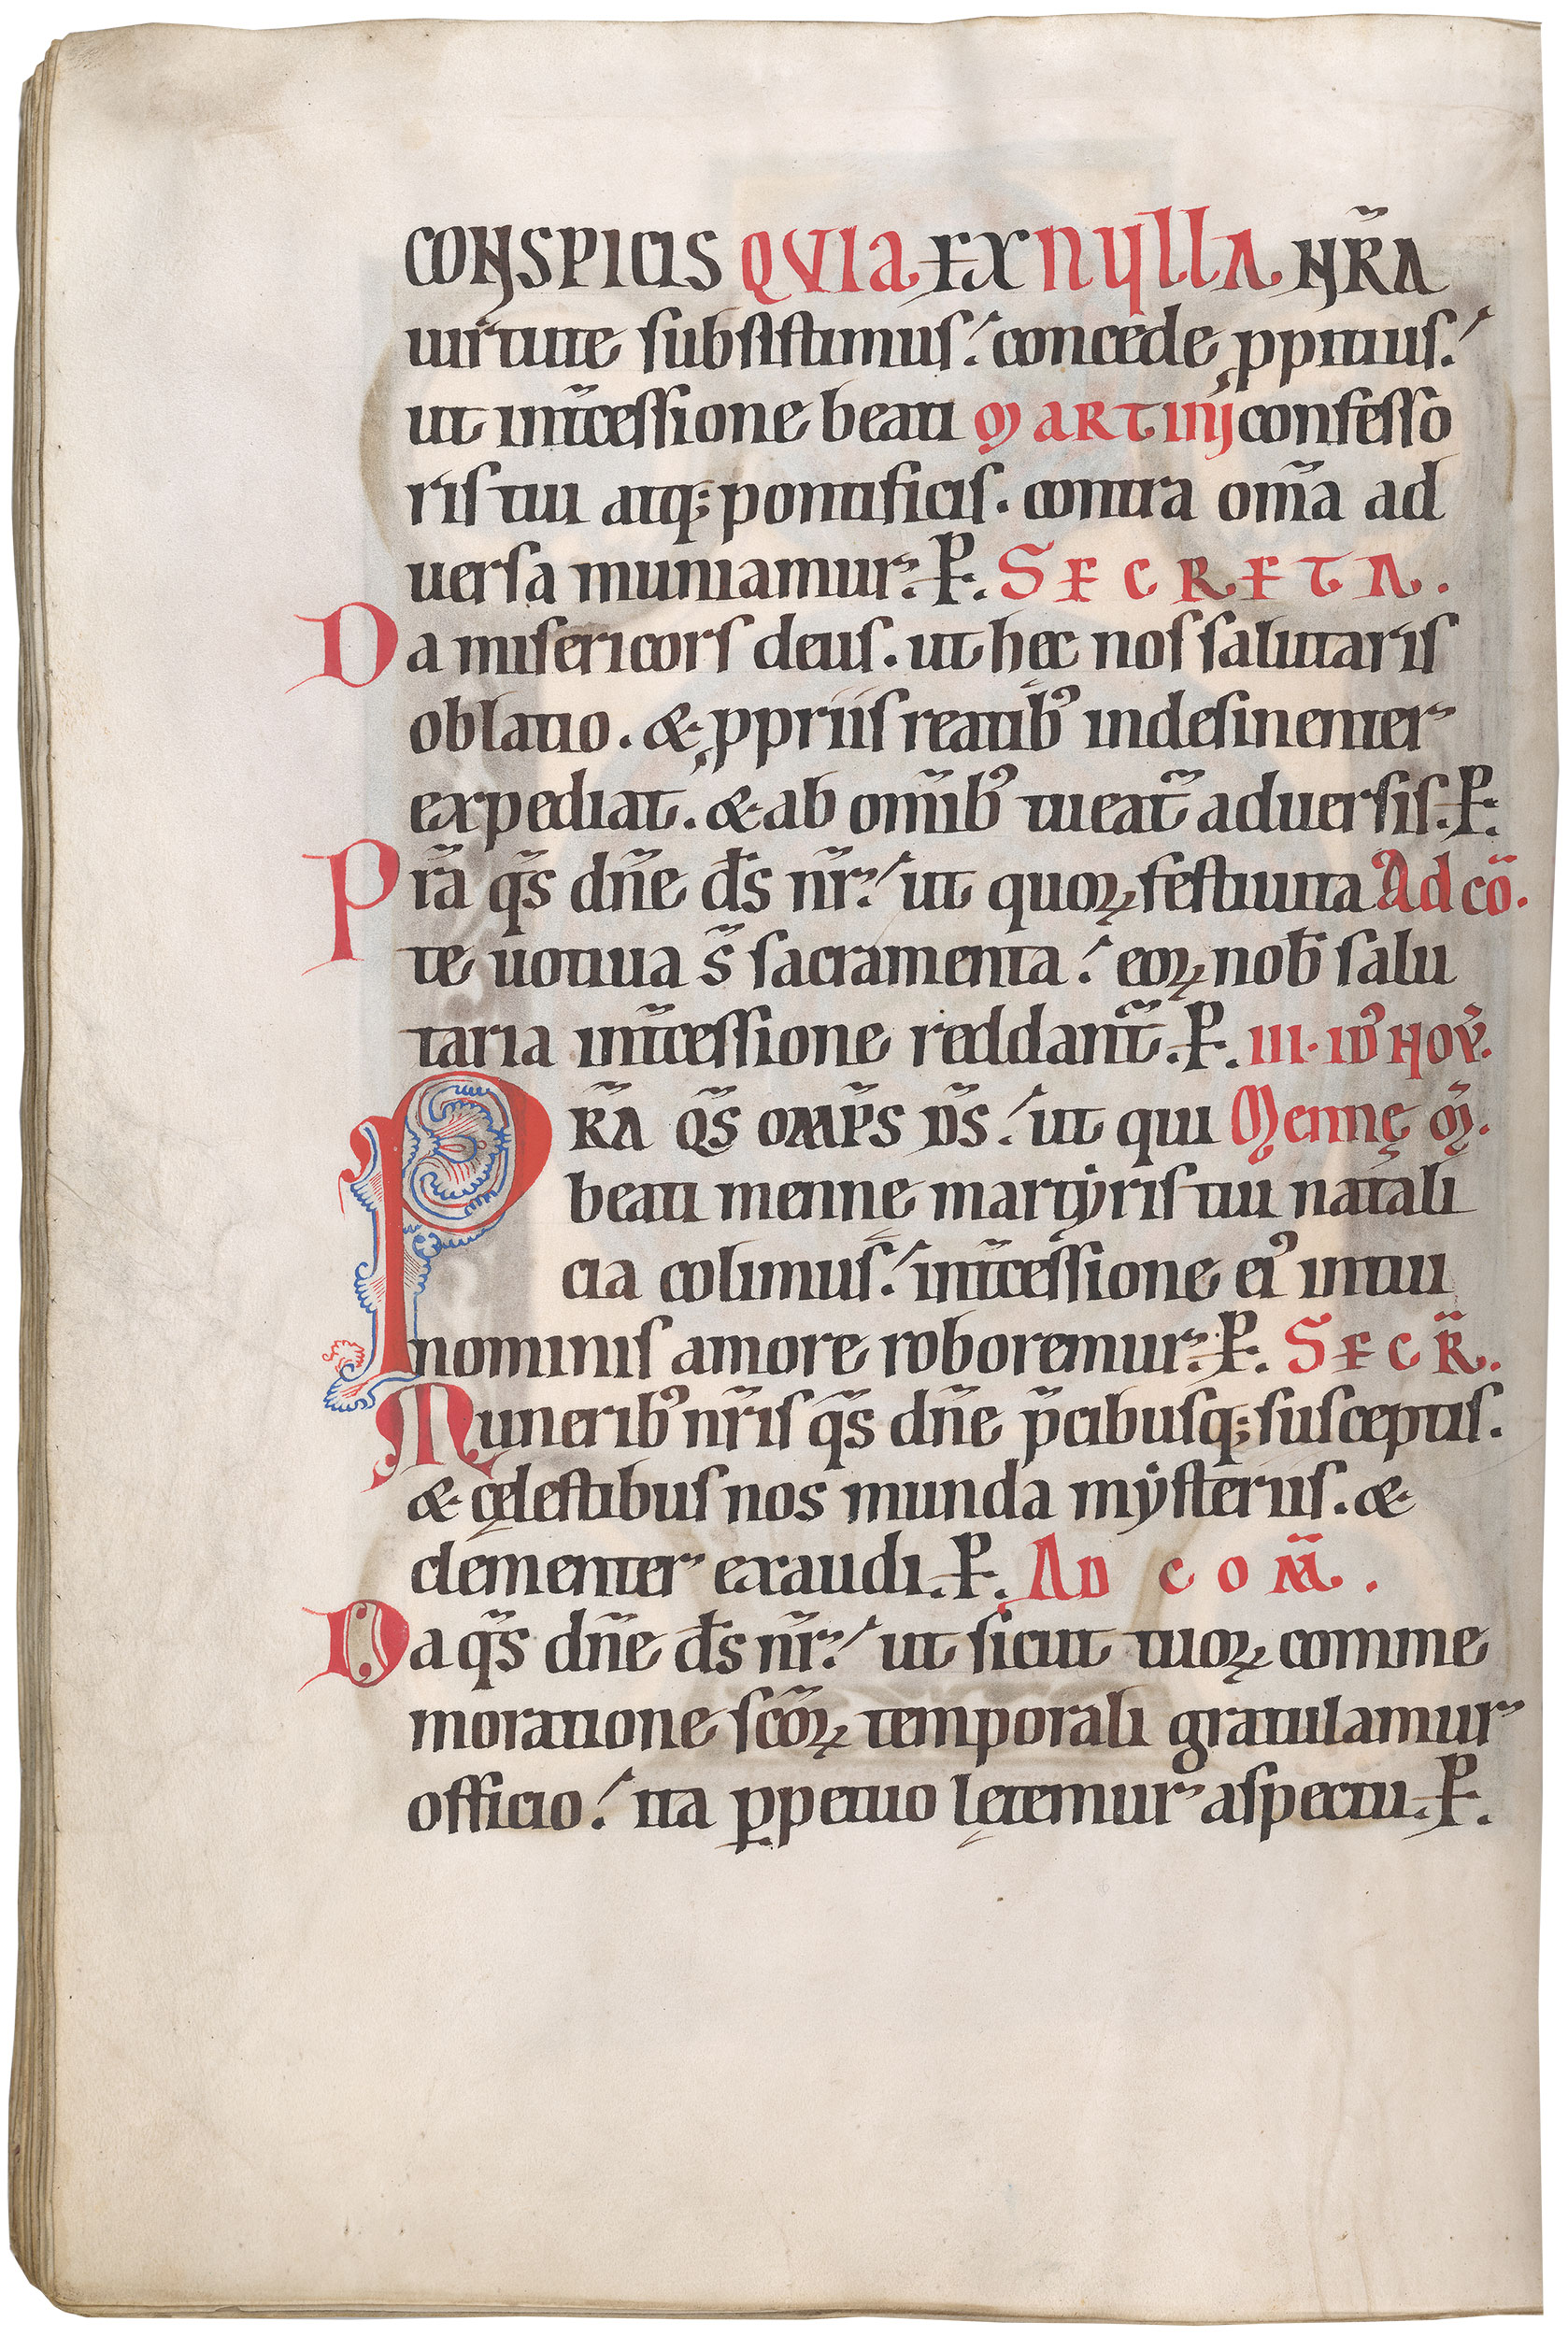 CONSPICIS QVIA EX NVLLA NR̃A
uirtute subsistimus. concede ꝓpitius.
ut int̃cessione beati MARTINIJ confesso
ris tui atq; pontificis. contra om̃a ad
uersa muniamur. P. SECRETA.
Da misericors deus. ut hęc nos salutaris
oblatio. & ꝓpriis reatib᾿ indesinenter
expediat. & ab om̃ib᾿ tueat̃ aduersis. P.
Pr̃a q̃s dñe d̄s nr̃. ut quoꝝ festiuita Ad cõ.
te uotiua s̃ sacramenta. eoꝝ nob̄ salu
taria int̃cessione reddant̃. P. III. ID᾿ NOṼ.
PR̃A Q̃S OMP̃S D̃S. ut qui Mennę M̃.
beati menne martẏris tui natali
cia colimus. int̃cessione ei᾿ in tui
nominis amore roboremur. P. SECR̃.
Munerib᾿ nr̃is q̃s dñe p̃cibusq; susceptis.
& cęlestibus nos munda mẏsteriis. &
clementer exaudi. P. AD COM̃.
Da q̃s dñe d̄s nr̃. ut sicut tuoꝝ comme
moratione sc̃oꝝ temporali gratulamur
officio. ita ꝑpetuo lętemur aspectu. P.